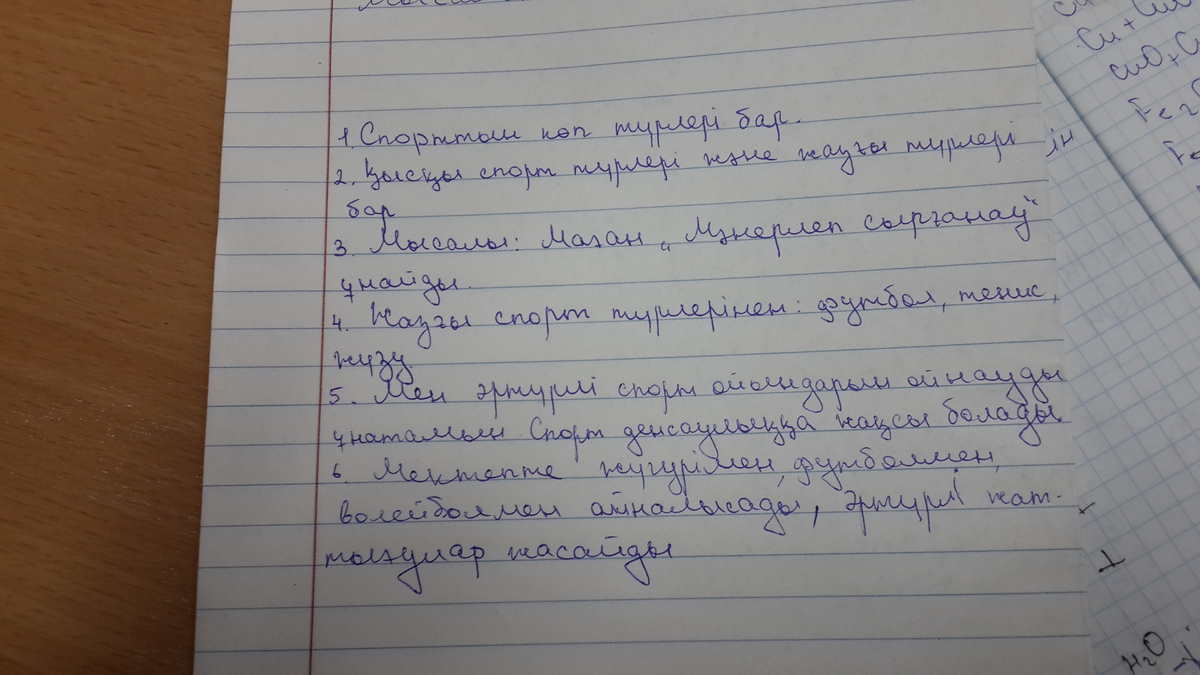 1. Спорттын көп түрлері бар.
2. Қысқы спорт түрлері және жазғы түрлері
бар
3. Мысалы: Маған „Мәнерлеп сырғанау“
ұнайды.
4. Жазғы спорт түрлерінен: футбол, тенис,
жүзу
5. Мен әртүрлі спорт ойындарын ойнауды
ұнатамын Спорт денсаулыққа жақсы болады
6. Мектепте жүгурімен, футболмен,
волейболмен айналысады, әртүрлі жат-
тығулар жасайды
ін
Cu + 
Fe2
H2O